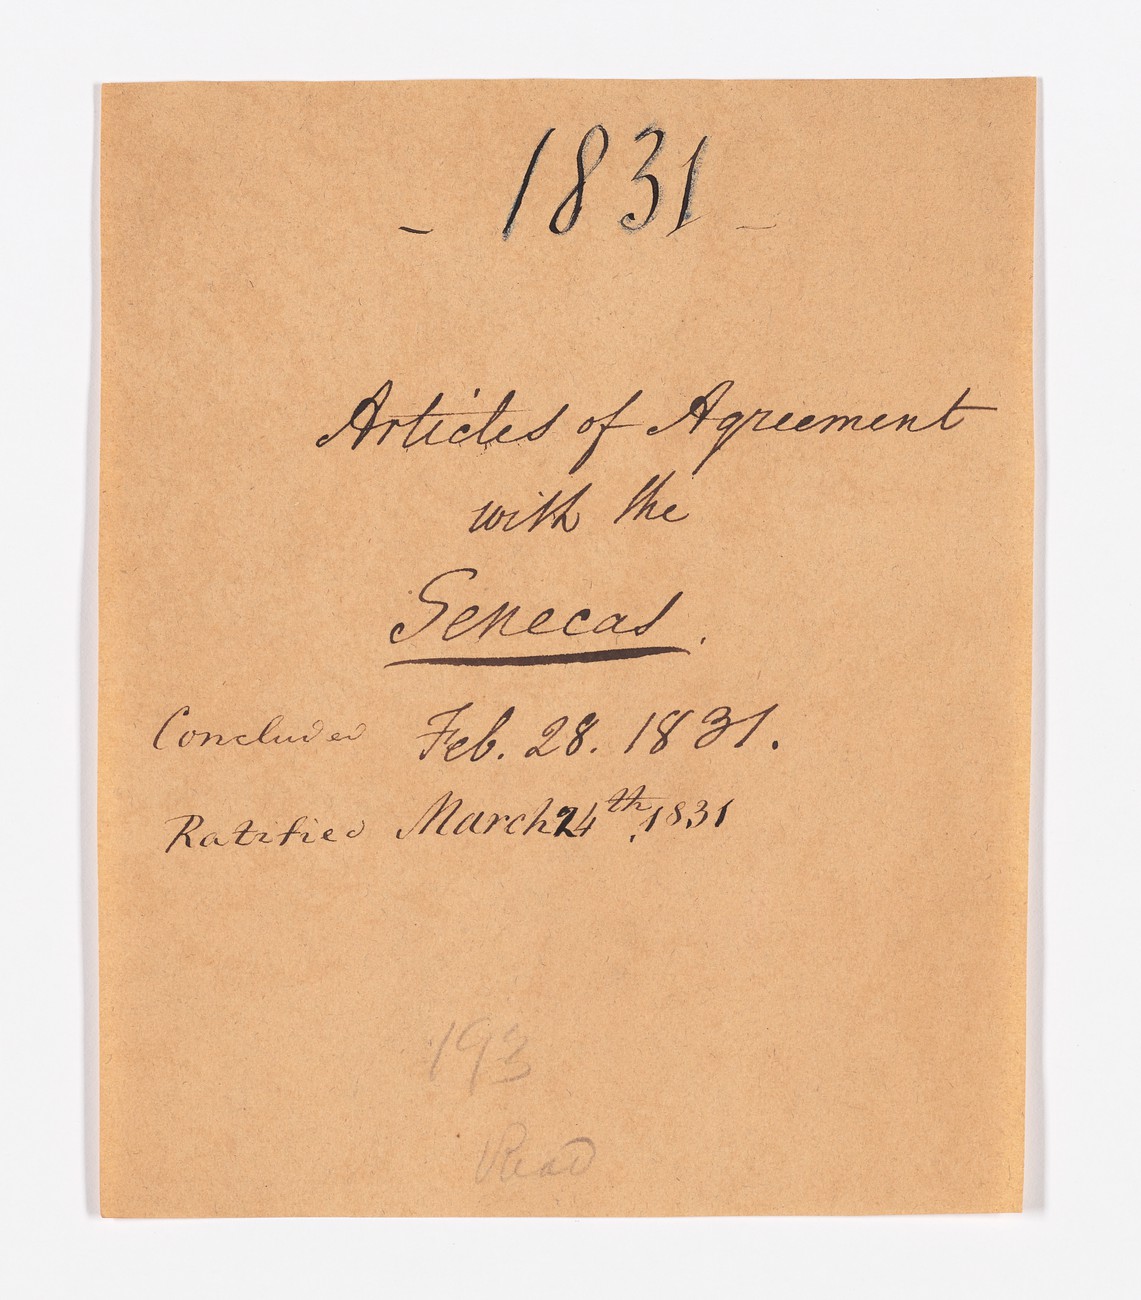 - 1831 -
Articles of Agreement
with the
Senecas.
Concluded Feb. 28. 1831.
Ratified March 24th, 1831
193
Read